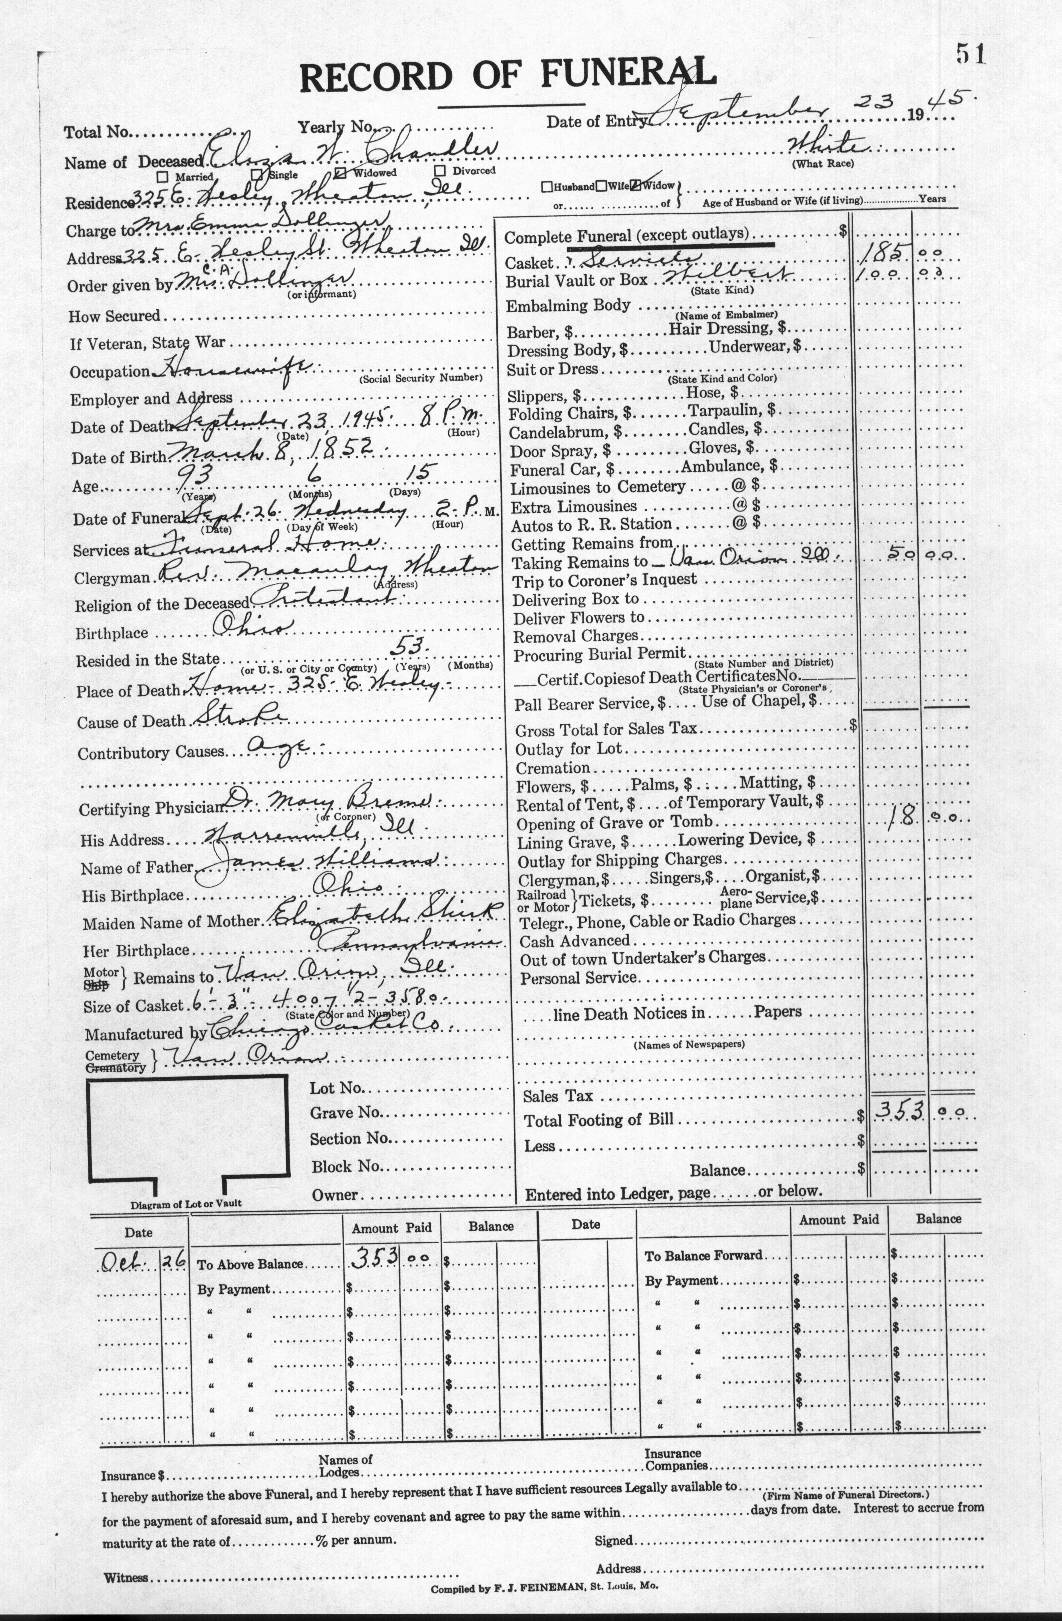 51
RECORD OF FUNERAL
Total No. Yearly No. Date of Entry September 23 1945.
Name of Deceased W. Chandler White
(What Race)
☐ Married ☐ Single ☑ Widowed ☐ Divorced
Residence 325 E. Wesley, Wheaton, Ill. ☐Husband☐Wife☑Widow} or...... of Age of Husband or Wife (if living) Years
Charge to Mrs. Emma Dollinger
Address 325 E. Wesley St. Wheaton Ill.
Order given by Mrs. C. A. Dollinger
(or informant)
How Secured
If Veteran, State War
Occupation Housewife
(Social Security Number)
Employer and Address
Date of Death September 23, 1945. 8 P.M.
(Date) (Hour)
Date of Birth March 8, 1852
Age 93 6 15
(Years) (Months) (Days)
Date of Funeral Sept. 26 Wednesday 2 P. M.
(Date) (Day of Week) (Hour)
Services at Funeral Home
Clergyman Rev. Macaulay, Wheaton
(Address)
Religion of the Deceased Protestant
Birthplace Ohio
Resided in the State 53
(or U. S. or City or County) (Years) (Months)
Place of Death Home - 325 E. Wesley
Cause of Death Stroke
Contributory Causes age
Certifying Physician Dr. Mary
(or Coroner)
His Address Warrenville, Ill.
Name of Father James Williams
His Birthplace Ohio
Maiden Name of Mother Elizabeth
Her Birthplace Pennsylvania
Motor Ship } Remains to Van Orion, Ill.
Size of Casket 6'-3" - 4007 1/2 - 3580
(State Color and Number)
Manufactured by Chicago Casket Co.
Cemetery Crematory } Van Orion
Lot No.
Grave No.
Section No.
Block No.
Owner
Diagram of Lot or Vault
Complete Funeral (except outlays) $
Casket & Services 185 00
Burial Vault or Box Wilbert 100 00
(State Kind)
Embalming Body
(Name of Embalmer)
Barber, $ Hair Dressing, $
Dressing Body, $ Underwear, $
Suit or Dress
(State Kind and Color)
Slippers, $ Hose, $
Folding Chairs, $ Tarpaulin, $
Candelabrum, $ Candles, $
Door Spray, $ Gloves, $
Funeral Car, $ Ambulance, $
Limousines to Cemetery @ $
Extra Limousines @ $
Autos to R. R. Station @ $
Getting Remains from
Taking Remains to Van Orion Ill. 50 00
Trip to Coroner's Inquest
Delivering Box to
Deliver Flowers to
Removal Charges
Procuring Burial Permit
(State Number and District)
Certif. Copies of Death Certificates No.
(State Physician's or Coroner's
Pall Bearer Service, $ Use of Chapel, $
Gross Total for Sales Tax $
Outlay for Lot
Cremation
Flowers, $ Palms, $ Matting, $
Rental of Tent, $ of Temporary Vault, $
Opening of Grave or Tomb 18 00
Lining Grave, $ Lowering Device, $
Outlay for Shipping Charges
Clergyman, $ Singers, $ Organist, $
Railroad or Motor } Tickets, $ Aero-plane Service, $
Telegr., Phone, Cable or Radio Charges
Cash Advanced
Out of town Undertaker's Charges
Personal Service
line Death Notices in Papers
(Names of Newspapers)
Sales Tax
Total Footing of Bill $ 353 00
Less $
Balance $
Entered into Ledger, page or below.
Date Amount Paid Balance Date Amount Paid Balance
Oct. 26 To Above Balance 353 00 $ To Balance Forward $
By Payment $ $ By Payment $ $
" " $ $ " " $ $
" " $ $ " " $ $
" " $ $ " " $ $
" " $ $ " " $ $
" " $ $ " " $ $
" " $ $ " " $ $
Insurance $ Names of Lodges Insurance Companies
I hereby authorize the above Funeral, and I hereby represent that I have sufficient resources Legally available to
(Firm Name of Funeral Directors.)
for the payment of aforesaid sum, and I hereby covenant and agree to pay the same within days from date. Interest to accrue from
maturity at the rate of % per annum. Signed
Witness Address
Compiled by F. J. FEINEMAN, St. Louis, Mo.